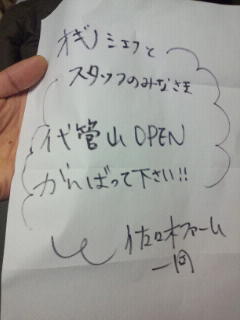 オギノシェフと
スタッフのみなさま
代官山OPEN
がんばって下さい!!
佐々木ファーム
一同